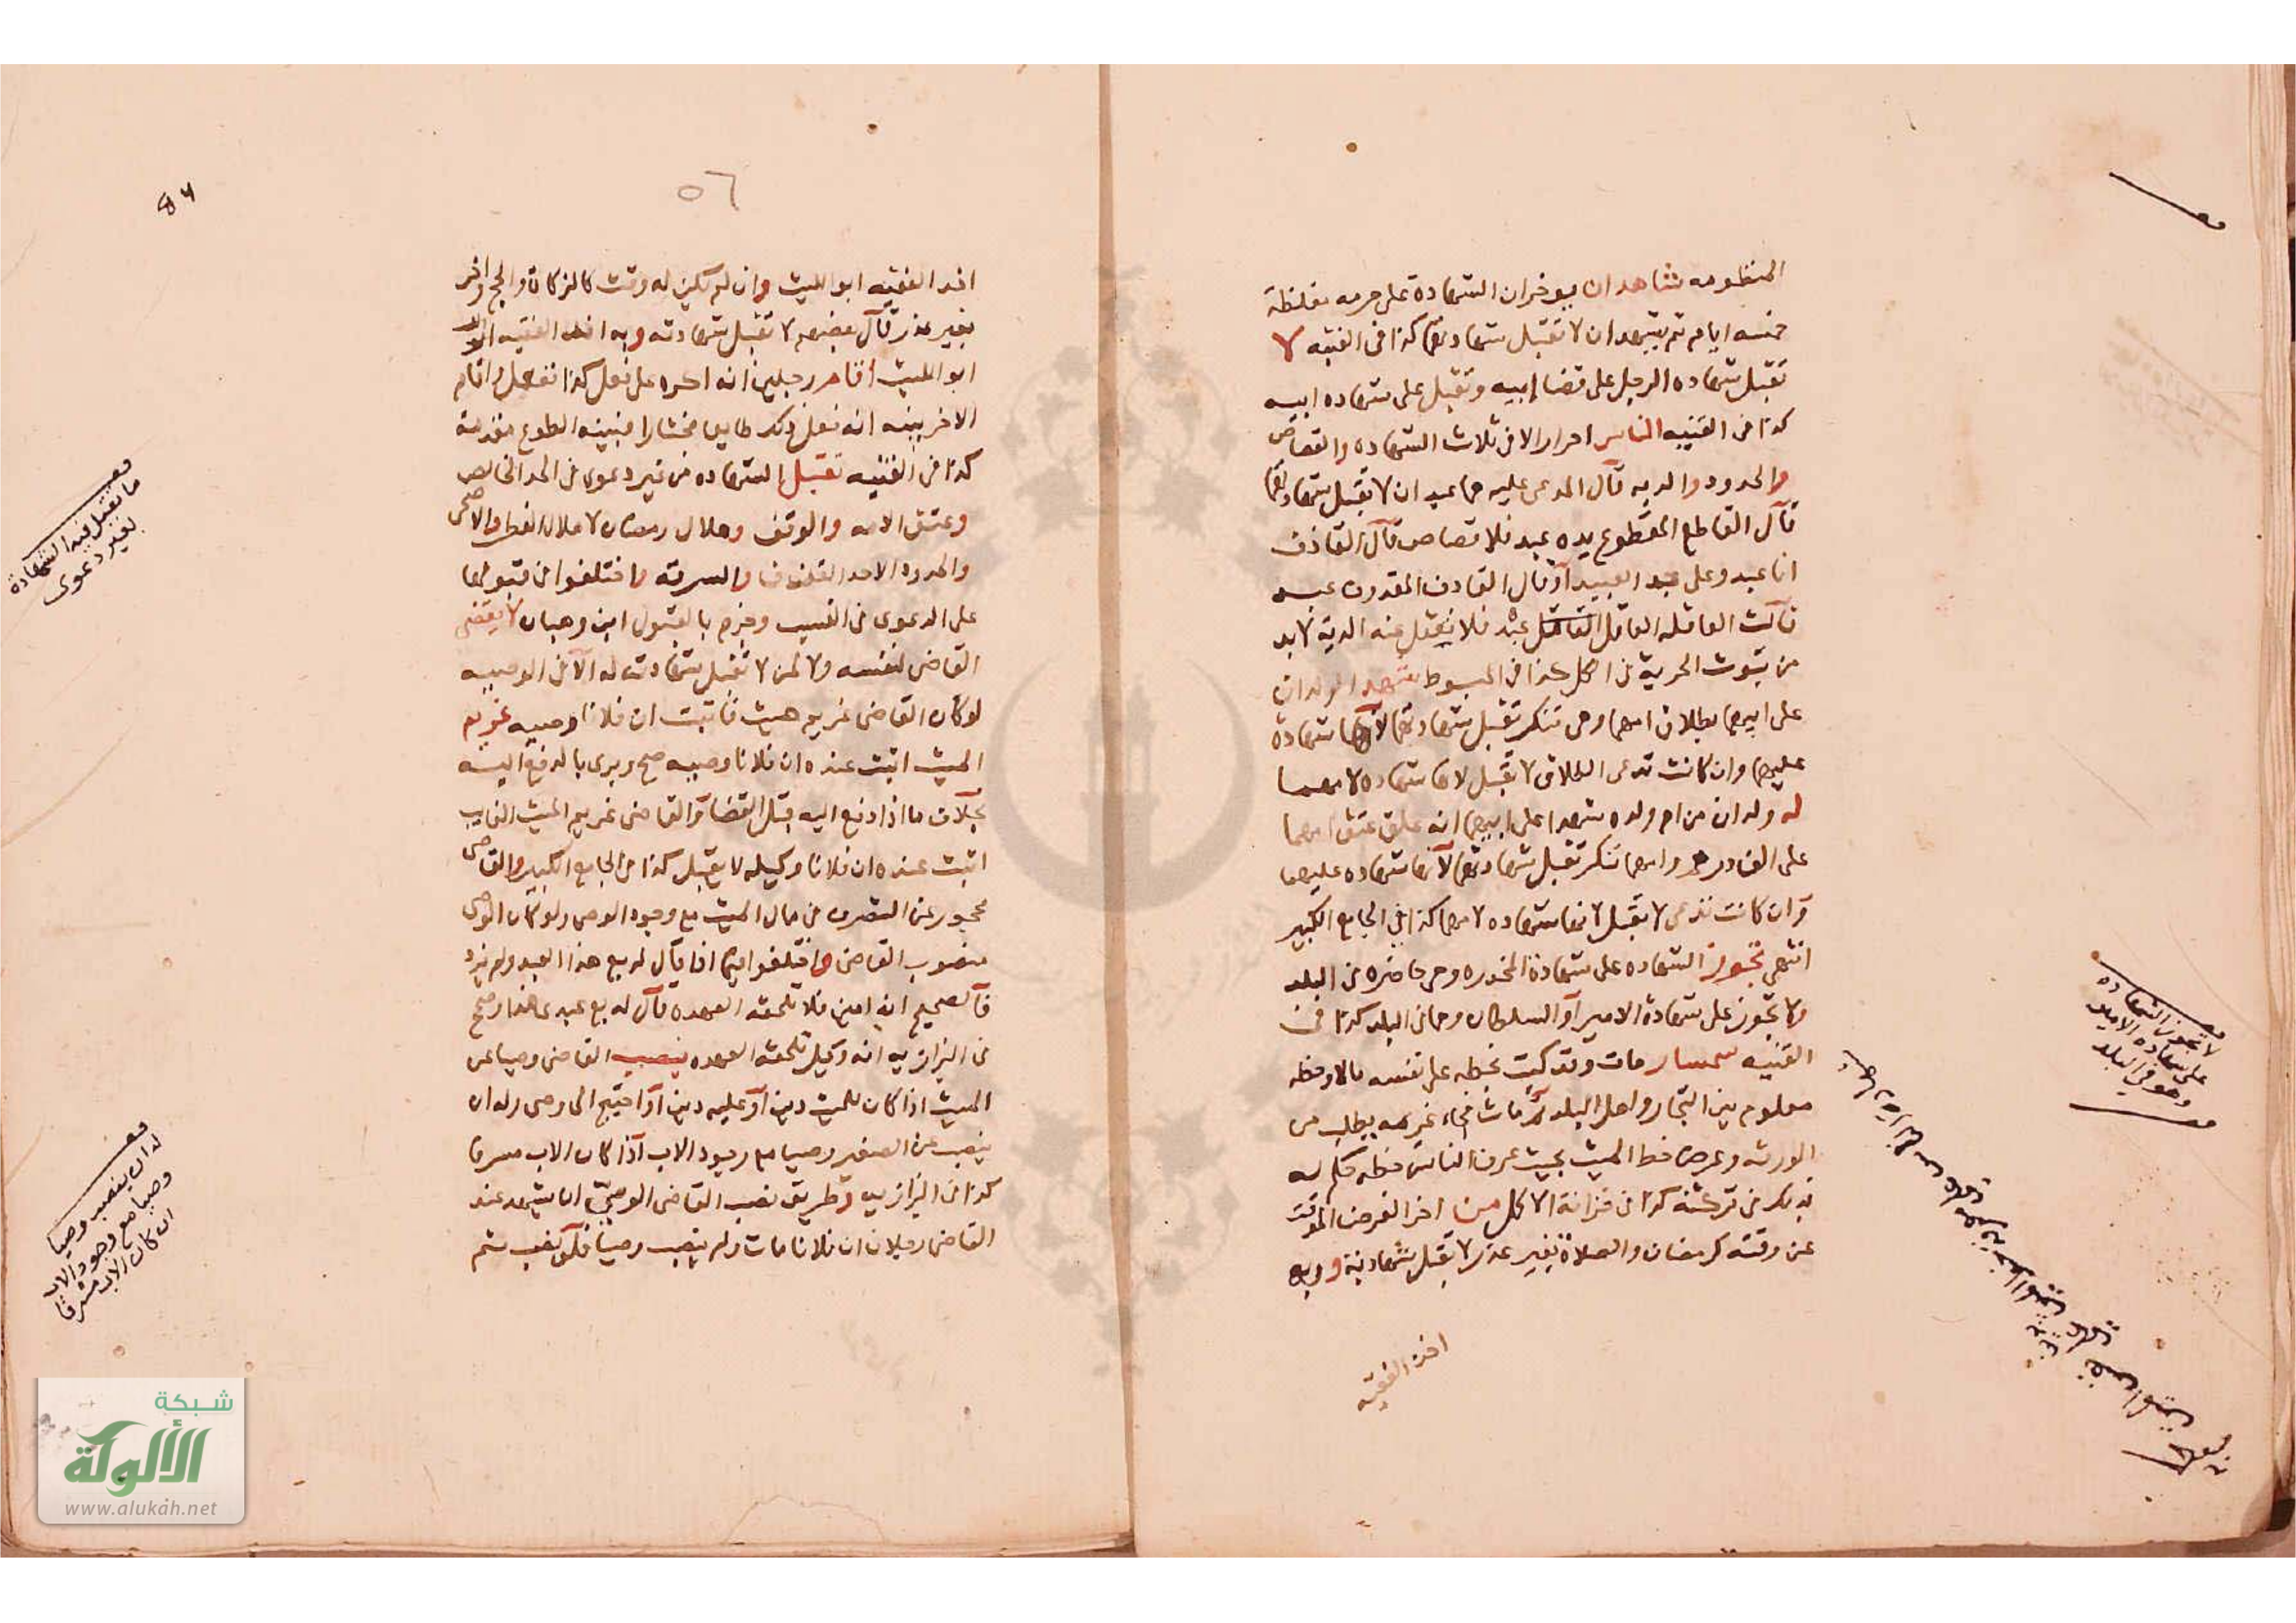 المنظومه شاهدان يوخران الشهادة على حرمه مغلظة
خمسه ايام ثم يشهدان لا تقبل شهادتهما كذا فى القنيه لا
تقبل شهاده الرجل على قضا ابيه وتقبل على شهاده ابيه
كذا فى القنيه الناس احرار الا فى ثلاث الشهاده والقصاص
والحدود والديه قال المدعى عليه هما عبدان لا تقبل شهادتهما
قال القاطع المقطوع يده عبد فلا قصاص قال القاذف
انا عبد وعلى حد العبيد او قال القاذف المقذوف عبد
قالت العاقله القاتل عبد فلا نعقل عنه الدية لا بد
من ثبوت الحرية فى الكل كذا فى المبسوط شهد الولدان
على ابيهما بطلاق امهما وهى تنكر تقبل شهادتهما لانها شهادة
عليهما وان كانت تدعى الطلاق لا تقبل لانها شهاده لامهما
له ولدان من ام ولده شهدا على ابيهما انه علق عتق امهما
على القادر وامهما تنكر تقبل شهادتهما لانها شهاده عليهما
وان كانت تدعى لا تقبل لانها شهاده لامهما كذا فى الجامع الكبير
انتهى تجوز الشهاده على شهادة المخدره وهى حاضره فى البلد
ولا تجوز على شهادة الامير او السلطان وهما فى البلد كذا فى
القنيه سمسار مات وقد كتب بخطه على نفسه مالا وخطه
معلوم بين التجار واهل البلد ثم مات فجاء غريمه يطلب من
الورثه وعرض خط الميت بحيث عرف الناس خطه حكم له
بذلك فى تركته كذا فى خزانة الاكمل من اخر الفرض الموقت
عن وقته كرمضان والصلاة بغير عذر لا تقبل شهادته وبه
اخذ الفقيه
لا تجوز الشهاده
على شهاده الامير
وهو فى البلد
٥٦
اخذ الفقيه ابو الليث وان لم يكن له وقت كالزكاة والحج واخر
بغير عذر قال بعضهم لا تقبل شهادته وبه اخذ الفقيه
ابو الليث اقام رجلين انه اكره على فعل كذا ففعل واقام
الاخر بينه انه فعل ذلك طايعا مختارا فبينه الطوع مقدمة
كذا فى القنيه تقبل الشهاده من غير دعوى فى الحد الخالص
وعتق الامه والوقف وهلال رمضان لا هلال الفطر والاضحى
والحدود الا حد القذف والسرقه واختلفوا فى قبولها
على الدعوى فى النسب وجزم بالقبول ابن وهبان لا يقضى
القاضى لنفسه ولا لمن لا تقبل شهادته له الا فى الوصيه
لو كان القاضى غريم ميت فاثبت ان فلانا وصيه غريم
الميت اثبت عنده ان فلانا وصيه صح وبرى بالدفع اليه
بخلاف ما اذا دفع اليه قبل القضا والقاضى غريم الميت الغايب
اثبت عنده ان فلانا وكيله لا يقبل كذا فى الجامع الكبير والقاضى
محجور عن التصرف فى مال الميت مع وجود الوصى ولو كان الوصى
منصوب القاضى واختلفوا فيما اذا قال له بع هذا العبد ولم يزد
فالصحيح انه امين فلا تلحقه العهده قال له بع عبدى هذا وصح
فى البزازيه انه وكيل تلحقه العهده ينصب القاضى وصيا عن
الميت اذا كان للميت دين او عليه دين او احتيج الى وصى وله ان
ينصب عن الصغير وصيا مع وجود الاب اذا كان الاب مسرفا
كذا فى البزازيه وطريق نصب القاضى الوصى ان يشهد عند
القاضى رجلان ان فلانا مات ولم ينصب وصيا فلو نصب ثم
ما تقبل فيه الشهادة
بغير دعوى
له ان ينصب وصيا
وصيا مع وجود الاب
ان كان الاب مسرفا
شبكة
الألوكة
www.alukah.net